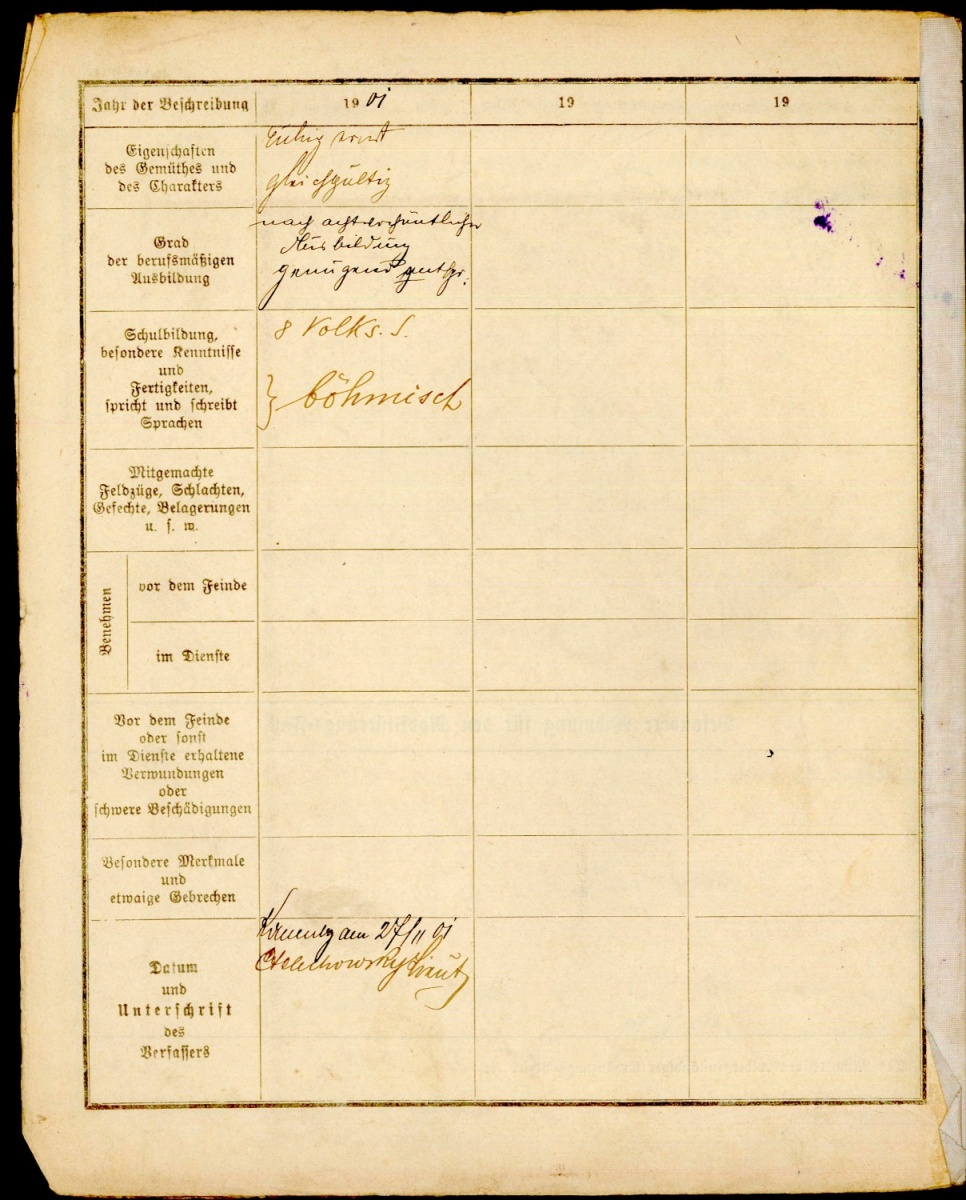 Jahr der Beschreibung
1901
19
19
Eigenschaften
des Gemüthes und
des Charakters
ruhig
gleichgültig
Grad
der berufsmäßigen
Ausbildung
nach achtwöchentlicher
Ausbildung
genügend
Schulbildung,
besondere Kenntnisse
und
Fertigkeiten,
spricht und schreibt
Sprachen
8 Volks. S.
} böhmisch
Mitgemachte
Feldzüge, Schlachten,
Gefechte, Belagerungen
u. s. w.
Benehmen
vor dem Feinde
im Dienste
Vor dem Feinde
oder sonst
im Dienste erhaltene
Verwundungen
oder
schwere Beschädigungen
Besondere Merkmale
und
etwaige Gebrechen
Datum
und
Unterschrift
des
Verfassers
am 27/11 01